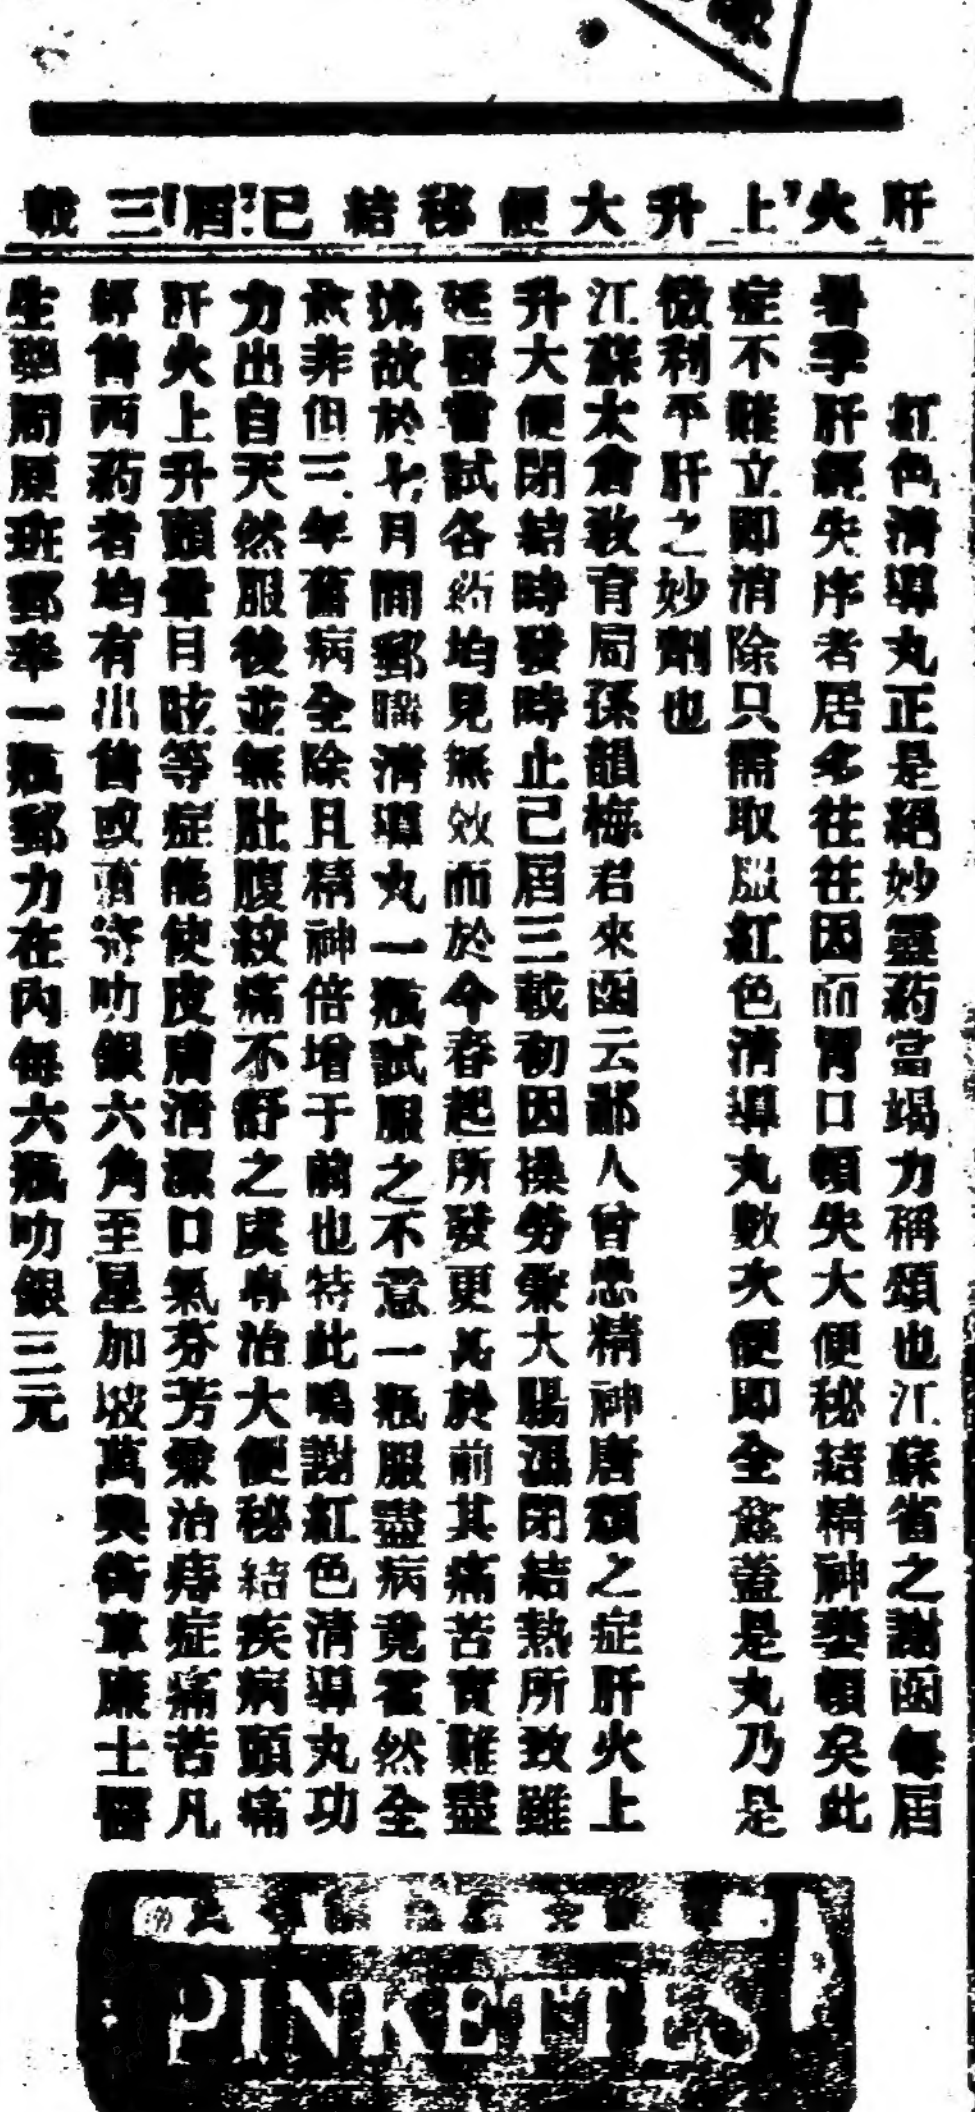 肝火上升大便秘結已屆三載
紅色清導丸正是絕妙靈药當竭力稱頌也江蘇省之謝函每屆
暑季肝經失序者居多往往因而胃口頓失大便秘結精神萎頓矣此
症不難立即消除只需取服紅色清導丸數次便即全愈蓋是丸乃是
微利平肝之妙劑也
江蘇太倉教育局孫韻梅君來函云鄙人曾患精神唐頹之症肝火上
升大便閉結時發時止已屆三載初因操勞兼大腸濕閉結熱所致雖
延醫嘗試各药均見無效而於今春起所發更甚於前其痛苦實難盡
故於七月間郵購清導丸一瓶試服之不意一瓶服盡病竟霍然全
愈非但三年舊病全除且精神倍增于前也特此鳴謝紅色清導丸功
力出自天然服後並無肚腹絞痛不舒之虞專治大便秘結疾病頭痛
肝火上升頭暈目眩等症能使皮膚清潔口氣芬芳兼治痔症痛苦凡
經售西药者均有出售或直寄叻銀六角至星加坡萬興街韋廉士醫
生藥局原班郵奉一瓶郵力在內每六瓶叻銀三元
PINKETTES